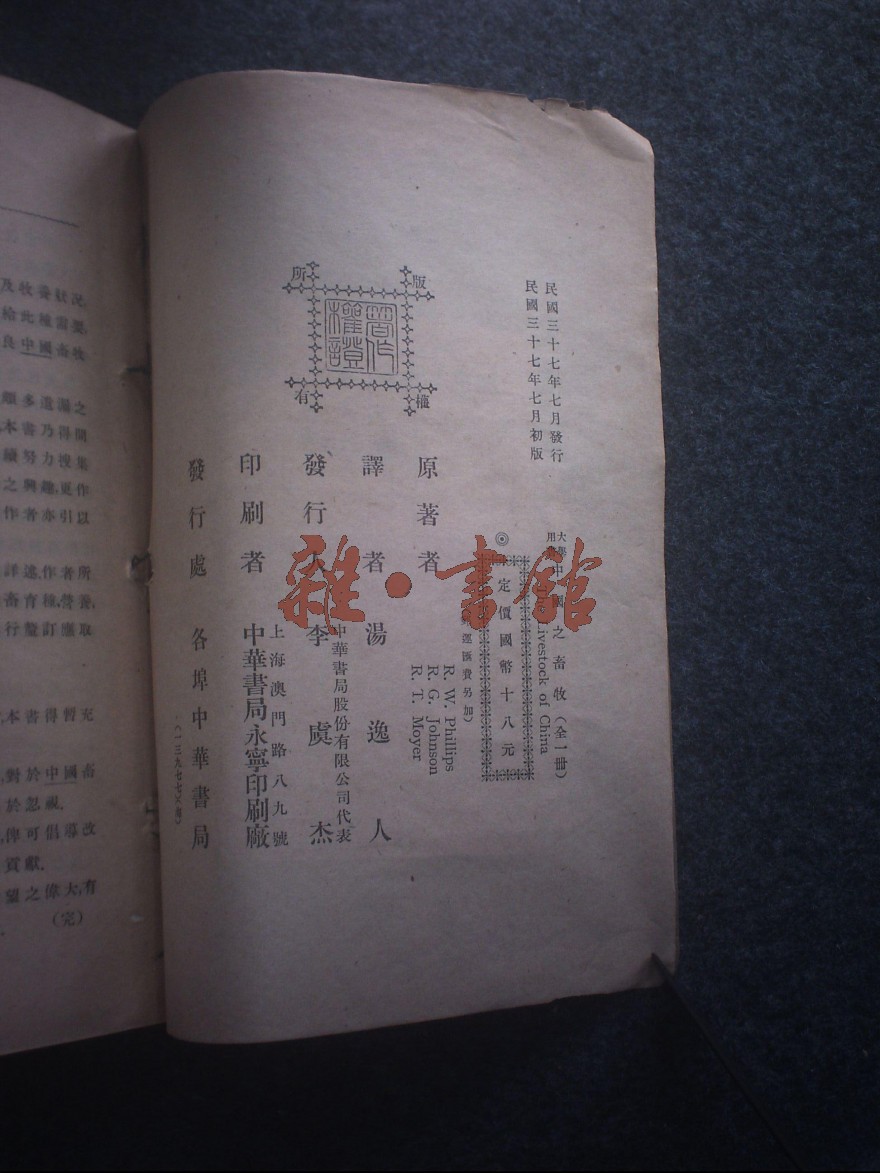 民國三十七年七月發行
民國三十七年七月初版
大學用書
中國之畜牧(全一冊)
Livestock of China
◎定價國幣十八元
運匯費另加)
R. W. Phillips
R. G. Johnson
R. T. Moyer
原著者
譯者 湯逸人
發行人 李虞杰
中華書局股份有限公司代表
印刷者 中華書局永寧印刷廠
上海澳門路八九號
發行處 各埠中華書局
(一三九七七)
版權所有
著作權證
雜·書館
及牧養狀況
給此種需要
良中國畜牧
頗多遺漏之
本書乃得間
續努力搜集
之興趣,更作
作者亦引以
詳述,作者所
畜育種,營養,
行釐訂應取
本書得暫充
對於中國畜
於忽視.
俾可倡導改
貢獻.
望之偉大,有
(完)